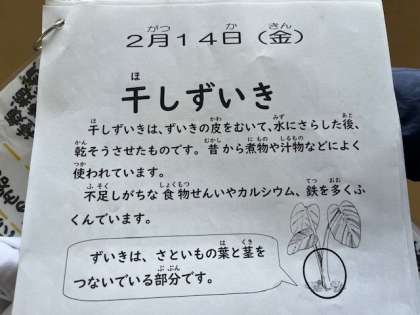 2月14日（金）
干しずいき
干しずいきは、ずいきの皮をむいて、水にさらした後、
乾そうさせたものです。昔から煮物や汁物などによく
使われています。
不足しがちな食物せんいやカルシウム、鉄を多くふ
くんでいます。
ずいきは、さといもの葉と茎を
つないでいる部分です。